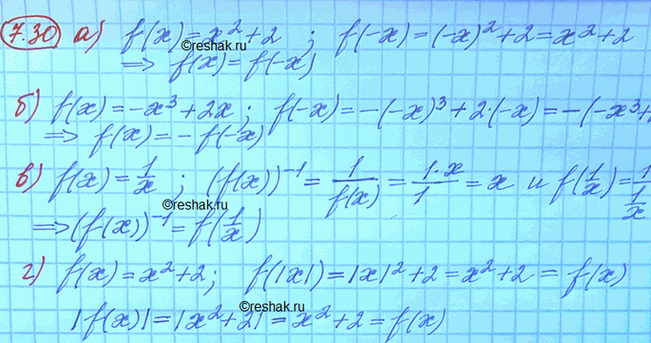 7.30 а) f(x)=x²+2 ; f(-x)=(-x)²+2=x²+2
©reshak.ru
⟹ f(x)=f(-x)
б) f(x)=-x³+2x; f(-x)=-(-x)³+2·(-x)=-(-x³+
⟹ f(x)=-f(-x)
в) f(x)=1/x ; (f(x))⁻¹=1/f(x)=1·x/1=x и f(1/x)=1/(1/x)
©reshak.ru
⟹(f(x))⁻¹=f(1/x)
г) f(x)=x²+2; f(|x|)=|x|²+2=x²+2=f(x)
©reshak.ru
|f(x)|=|x²+2|=x²+2=f(x)